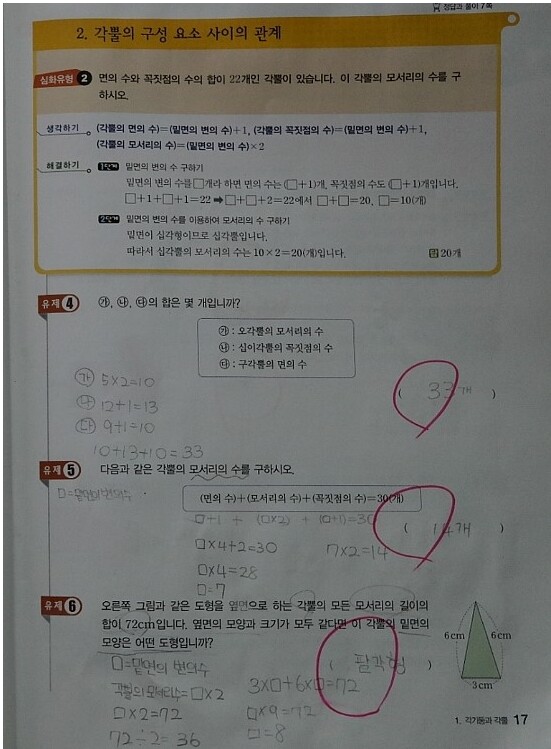 정답과 풀이 7쪽
2. 각뿔의 구성 요소 사이의 관계
심화유형 2 면의 수와 꼭짓점의 수의 합이 22개인 각뿔이 있습니다. 이 각뿔의 모서리의 수를 구
하시오.
생각하기 (각뿔의 면의 수)=(밑면의 변의 수)+1, (각뿔의 꼭짓점의 수)=(밑면의 변의 수)+1,
(각뿔의 모서리의 수)=(밑면의 변의 수)×2
해결하기 1단계 밑면의 변의 수 구하기
밑면의 변의 수를 □개라 하면 면의 수는 (□+1)개, 꼭짓점의 수도 (□+1)개입니다.
□+1+□+1=22 ➡ □+□+2=22에서 □+□=20, □=10(개)
2단계 밑면의 변의 수를 이용하여 모서리의 수 구하기
밑면이 십각형이므로 십각뿔입니다.
따라서 십각뿔의 모서리의 수는 10×2=20(개)입니다. 답 20개
유제 4 ㉮, ㉯, ㉰의 합은 몇 개입니까?
㉮ : 오각뿔의 모서리의 수
㉯ : 십이각뿔의 꼭짓점의 수
㉰ : 구각뿔의 면의 수
㉮ 5×2=10
㉯ 12+1=13
㉰ 9+1=10
10+13+10=33
( 33개 )
유제 5 다음과 같은 각뿔의 모서리의 수를 구하시오.
□=밑면의 변의수
(면의 수)+(모서리의 수)+(꼭짓점의 수)=30(개)
□+1 + (□×2) + (□+1)=30
( 14개 )
□×4+2=30 7×2=14
□×4=28
□=7
유제 6 오른쪽 그림과 같은 도형을 옆면으로 하는 각뿔의 모든 모서리의 길이의
합이 72cm입니다. 옆면의 모양과 크기가 모두 같다면 이 각뿔의 밑면의
모양은 어떤 도형입니까?
6cm 6cm
3cm
( 팔각형 )
□=밑면의 변의수
각뿔의 모서리수=□×2 3×□+6×□=72
□×2=72 □×9=72
72÷2=36 □=8
1. 각기둥과 각뿔 17